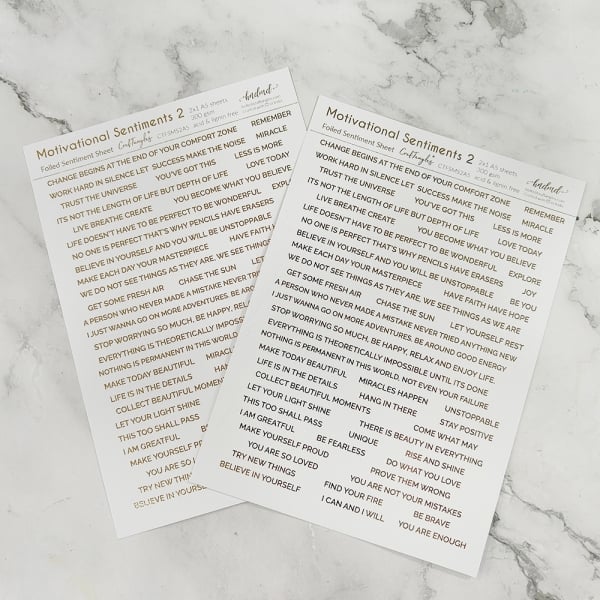 Motivational Sentiments 2 2x1 A5 sheets
300 gsm
Foiled Sentiment Sheet Craftangles CTFSMS2A5 acid & lignin free
hndmd
CHANGE BEGINS AT THE END OF YOUR COMFORT ZONE REMEMBER
WORK HARD IN SILENCE LET SUCCESS MAKE THE NOISE MIRACLE
TRUST THE UNIVERSE YOU'VE GOT THIS LESS IS MORE
ITS NOT THE LENGTH OF LIFE BUT DEPTH OF LIFE LOVE TODAY
LIVE BREATHE CREATE YOU BECOME WHAT YOU BELIEVE
LIFE DOESN'T HAVE TO BE PERFECT TO BE WONDERFUL EXPL
NO ONE IS PERFECT THAT'S WHY PENCILS HAVE ERASERS
BELIEVE IN YOURSELF AND YOU WILL BE UNSTOPPABLE
MAKE EACH DAY YOUR MASTERPIECE HAVE FAITH
WE DO NOT SEE THINGS AS THEY ARE, WE SEE THINGS
GET SOME FRESH AIR CHASE THE SUN LET
A PERSON WHO NEVER MADE A MISTAKE NEVER TRIED
I JUST WANNA GO ON MORE ADVENTURES. BE AROUND
STOP WORRYING SO MUCH, BE HAPPY, RELAX
EVERYTHING IS THEORETICALLY IMPOSSIBLE
NOTHING IS PERMANENT IN THIS WORLD
MAKE TODAY BEAUTIFUL
LIFE IS IN THE DETAILS
COLLECT BEAUTIFUL MOMENTS
LET YOUR LIGHT SHINE
THIS TOO SHALL PASS
I AM GREATFUL
MAKE YOURSELF PROUD
YOU ARE SO LOVED
TRY NEW THINGS
BELIEVE IN YOURSELF
Motivational Sentiments 2 2x1 A5 sheets
300 gsm
Foiled Sentiment Sheet Craftangles CTFSMS2A5 acid & lignin free
hndmd
CHANGE BEGINS AT THE END OF YOUR COMFORT ZONE REMEMBER
WORK HARD IN SILENCE LET SUCCESS MAKE THE NOISE MIRACLE
TRUST THE UNIVERSE YOU'VE GOT THIS LESS IS MORE
ITS NOT THE LENGTH OF LIFE BUT DEPTH OF LIFE LOVE TODAY
LIVE BREATHE CREATE YOU BECOME WHAT YOU BELIEVE
LIFE DOESN'T HAVE TO BE PERFECT TO BE WONDERFUL EXPLORE
NO ONE IS PERFECT THAT'S WHY PENCILS HAVE ERASERS JOY
BELIEVE IN YOURSELF AND YOU WILL BE UNSTOPPABLE BE YOU
MAKE EACH DAY YOUR MASTERPIECE HAVE FAITH HAVE HOPE
WE DO NOT SEE THINGS AS THEY ARE, WE SEE THINGS AS WE ARE
GET SOME FRESH AIR CHASE THE SUN LET YOURSELF REST
A PERSON WHO NEVER MADE A MISTAKE NEVER TRIED ANYTHING NEW
I JUST WANNA GO ON MORE ADVENTURES. BE AROUND GOOD ENERGY
STOP WORRYING SO MUCH, BE HAPPY, RELAX AND ENJOY LIFE.
EVERYTHING IS THEORETICALLY IMPOSSIBLE UNTIL ITS DONE
NOTHING IS PERMANENT IN THIS WORLD, NOT EVEN YOUR FAILURE
MAKE TODAY BEAUTIFUL MIRACLES HAPPEN UNSTOPPABLE
LIFE IS IN THE DETAILS HANG IN THERE STAY POSITIVE
COLLECT BEAUTIFUL MOMENTS COME WHAT MAY
LET YOUR LIGHT SHINE THERE IS BEAUTY IN EVERYTHING
THIS TOO SHALL PASS UNIQUE RISE AND SHINE
I AM GREATFUL BE FEARLESS DO WHAT YOU LOVE
MAKE YOURSELF PROUD PROVE THEM WRONG
YOU ARE SO LOVED YOU ARE NOT YOUR MISTAKES
TRY NEW THINGS FIND YOUR FIRE BE BRAVE
BELIEVE IN YOURSELF I CAN AND I WILL YOU ARE ENOUGH